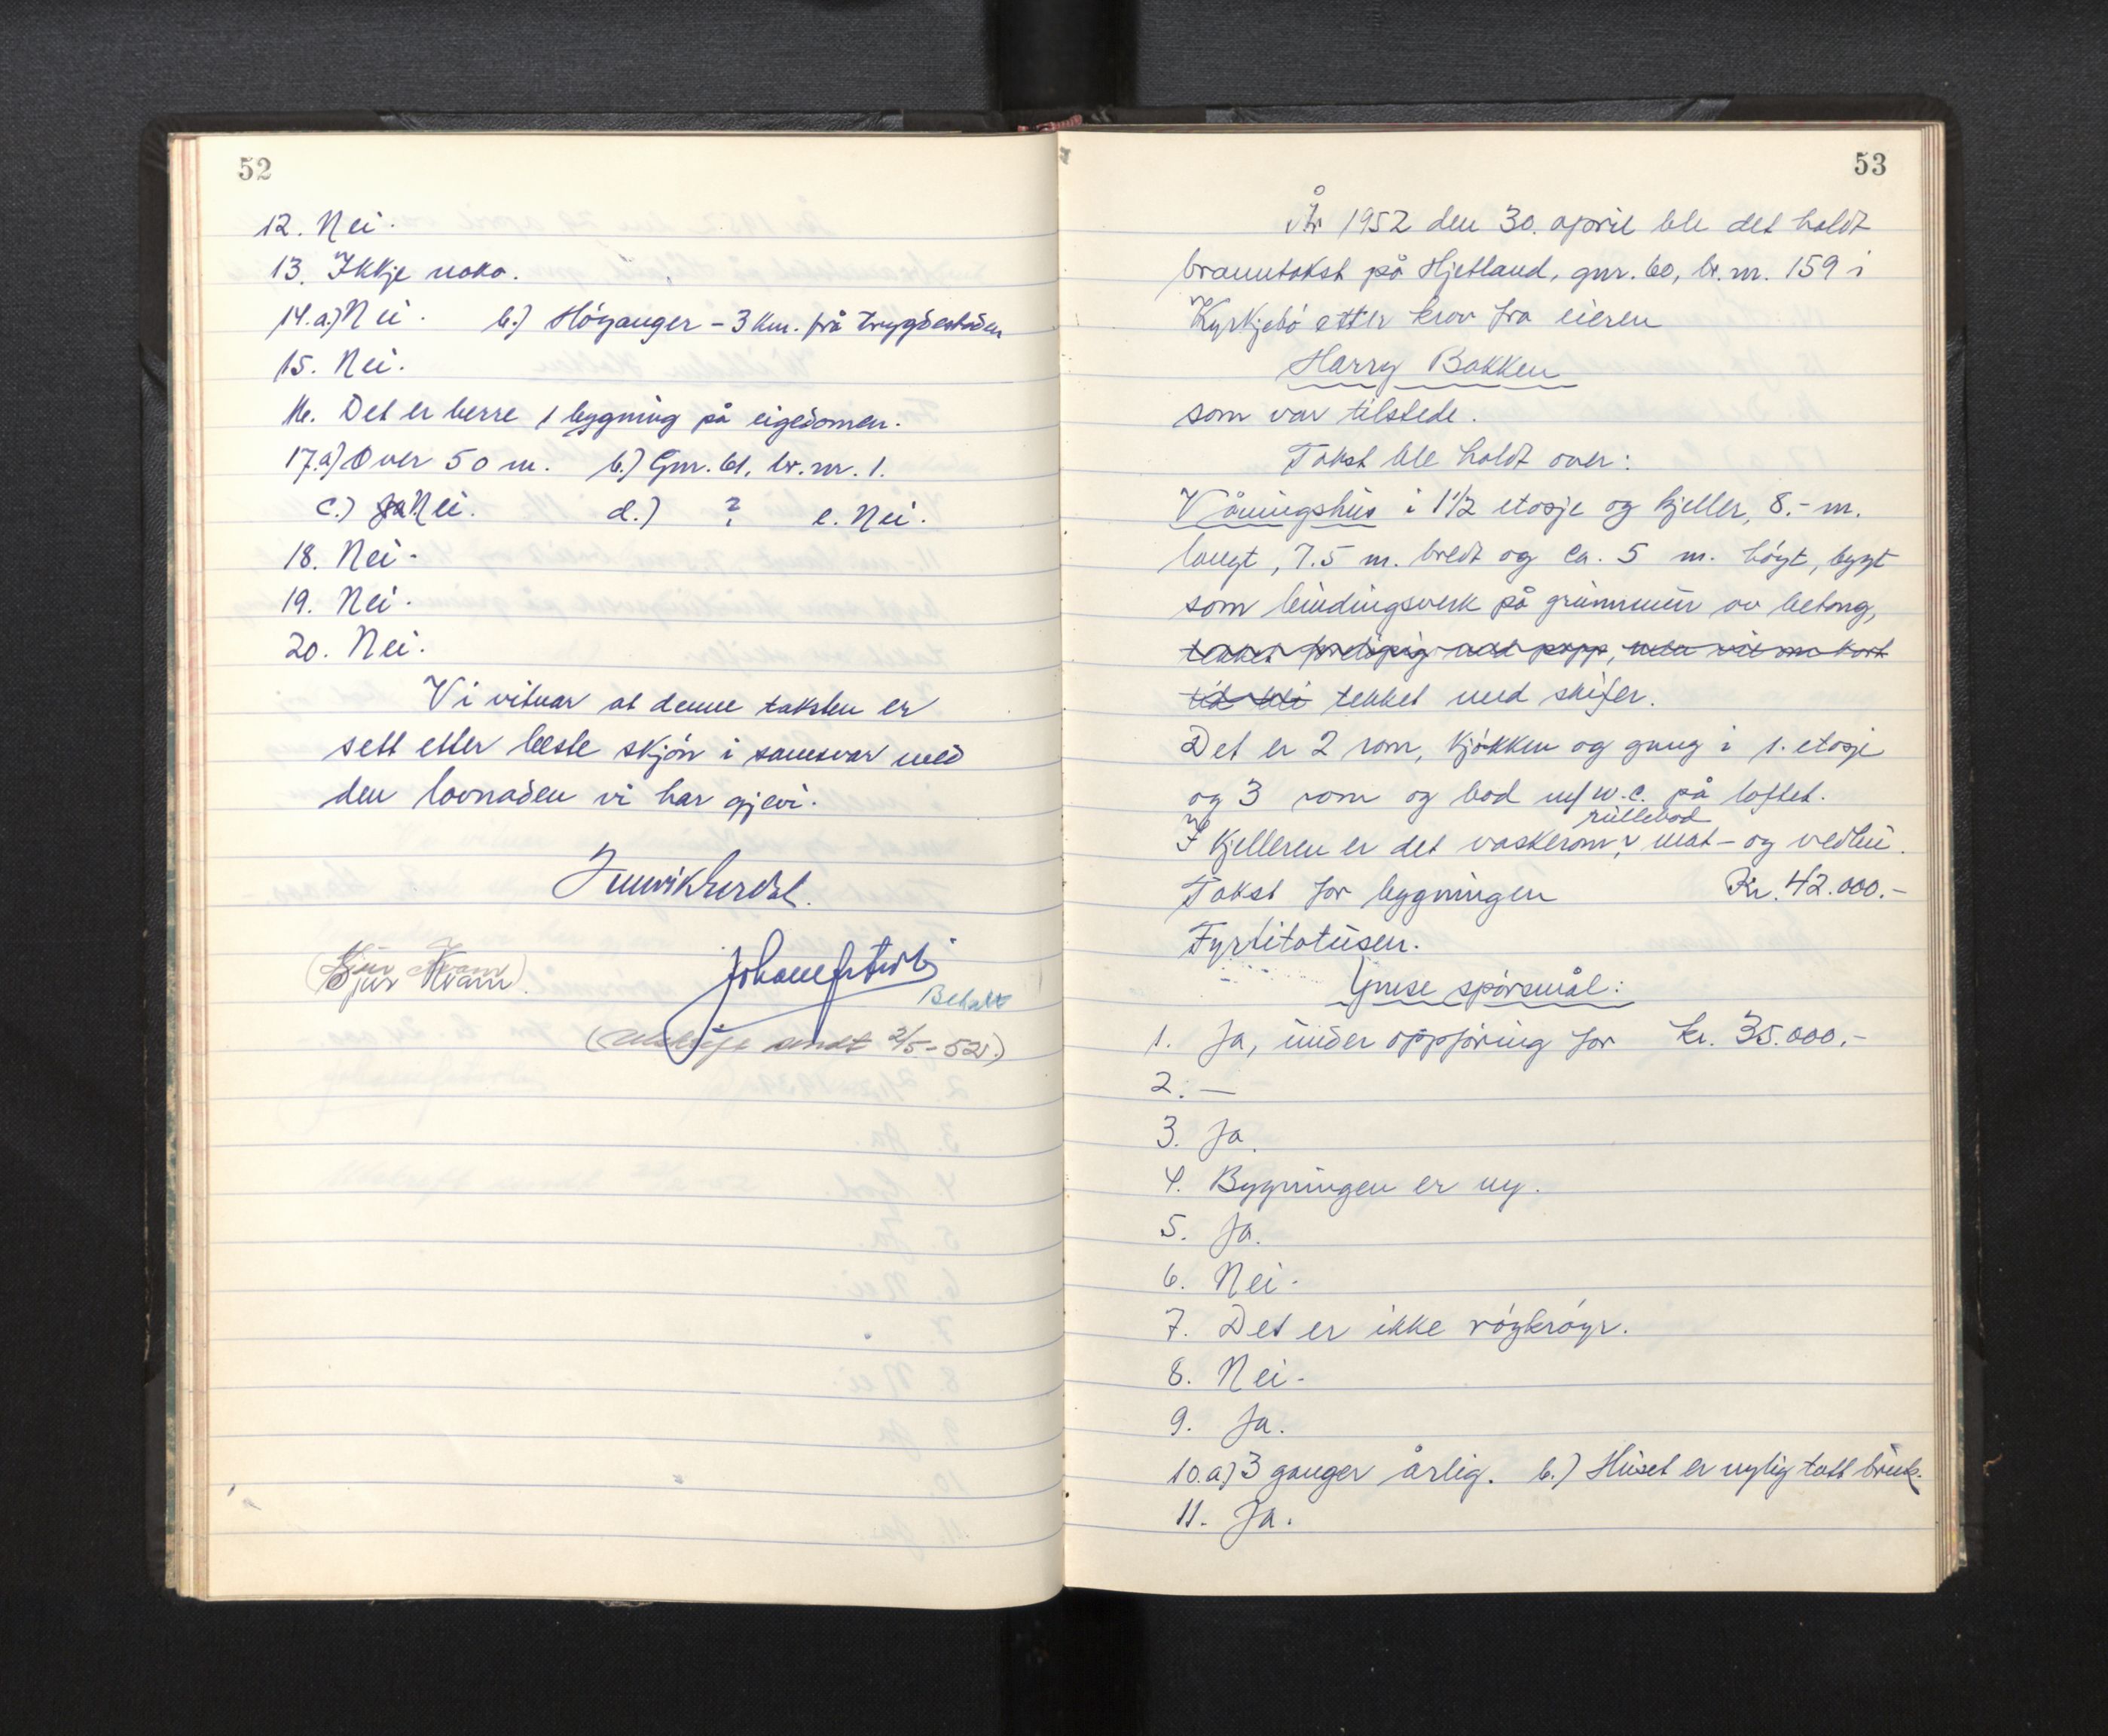 52
12. Nei.
13. Ikkje noko.
14.a.) Nei. b.) Höyanger – 3 km. frå trygdestaden
15. Nei.
16. Det er berre 1 bygning på eigedomen.
17.a) Over 50 m. b.) Gnr. 61, br. nr. 1.
c.) Ja Nei. d.) ? e. Nei.
18. Nei.
19. Nei.
20. Nei.
Vi vitnar at denne taksten er
sett etter beste skjön i samsvar med
den lovnaden vi har gjevi.
(Sjur Kvam)
Sjur Kvam
Betalt
(Utskrift sendt 2/5-52.)
53
År 1952 den 30. april ble det holdt
branntakst på Hjetland, gnr. 60, br. nr. 159 i
Kyrkjebö etter krav fra eieren
Harry Bakken
som var tilstede.
Takst ble holdt over:
Våningshus i 1 1/2 etasje og kjeller, 8.- m.
langt, 7.5 m. bredt og ca. 5 m. höyt, bygt
som bindingsverk på grunnmur av betong,
tekket forelöpig med papp, men vil om kort
tid bli tekket med skifer.
Det er 2 rom, kjökken og gang i 1. etasje
og 3 rom og bod m/ w.c. på loftet.
rullebod
I kjelleren er det vaskerom, mat- og vedbu.
Takst for bygningen Kr. 42.000.-
Fyrtitotusen.
Ymse spörsmål:
1. Ja, under oppföring for kr. 35.000.-
2. —
3. Ja.
4. Bygningen er ny.
5. Ja.
6. Nei.
7. Det er ikke röykröyr.
8. Nei.
9. Ja.
10.a) 3 ganger årlig. b.) Huset er nylig tatt bruk.
11. Ja.